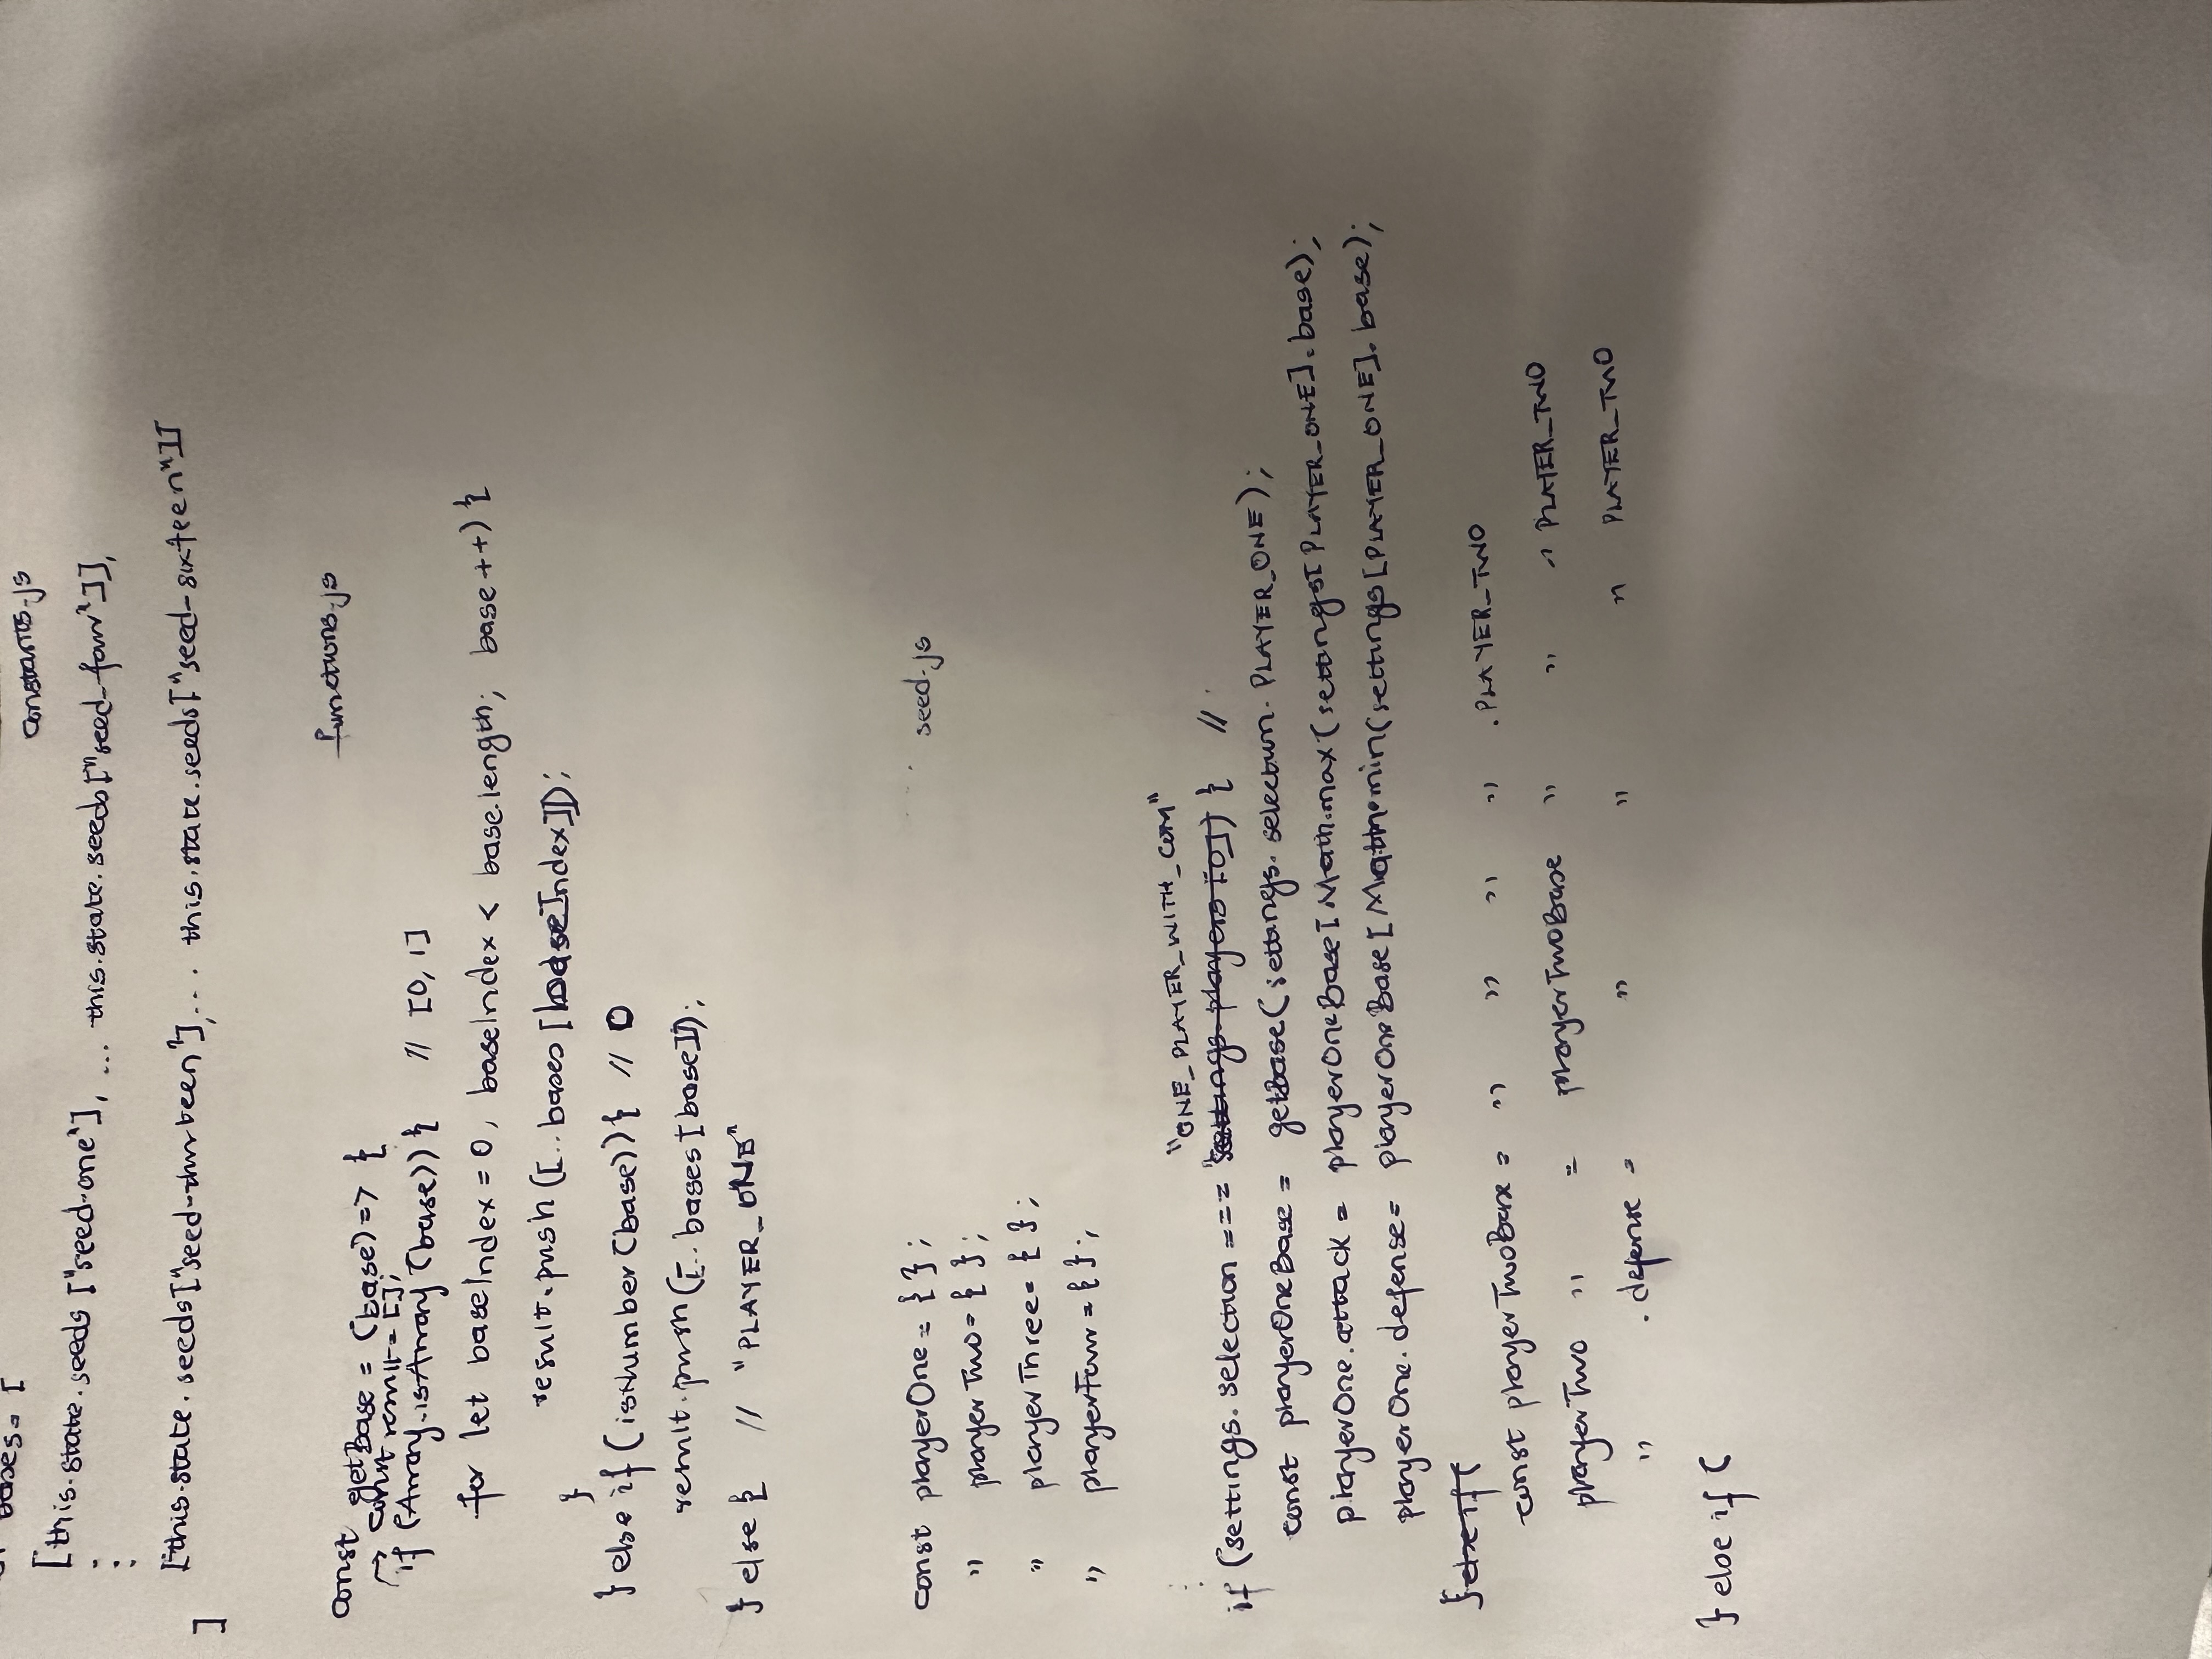 bases = [
constants.js
[this.state.seeds ["seed-one"], ... this.state.seeds["seed-four"]],
:
:
[this.state.seeds["seed-thirteen"],... this.state.seeds["seed-sixteen"]]
]
functions.js
const getBase = (base) => {
→ const result = [];
if (Array.isArray (base)) { // [0, 1]
for let baseIndex = 0, baseIndex < base.length; base++) {
result.push ([.. bases [baseIndex]]);
}
} else if (isNumber (base)) { // 0
result.push ([.. bases [base]]);
} else { // "PLAYER_ONE"
const playerOne = { };
seed.js
" playerTwo = { };
" playerThree = { };
" playerFour = { };
:
"ONE_PLAYER_WITH_COM"
if (settings.selection === "settings.players [0]) { //
const playerOneBase = getBase (settings.selection.PLAYER_ONE);
playerOne.attack = playerOneBase [Math.max (settings[PLAYER_ONE].base);
playerOne.defense = playerOneBase [Math.min(settings[PLAYER_ONE].base);
} else if (
const playerTwoBase = " " " " .PLAYER_TWO
playerTwo " = playerTwoBase " " " PLAYER_TWO
" .defense = " " " PLAYER_TWO
} else if (